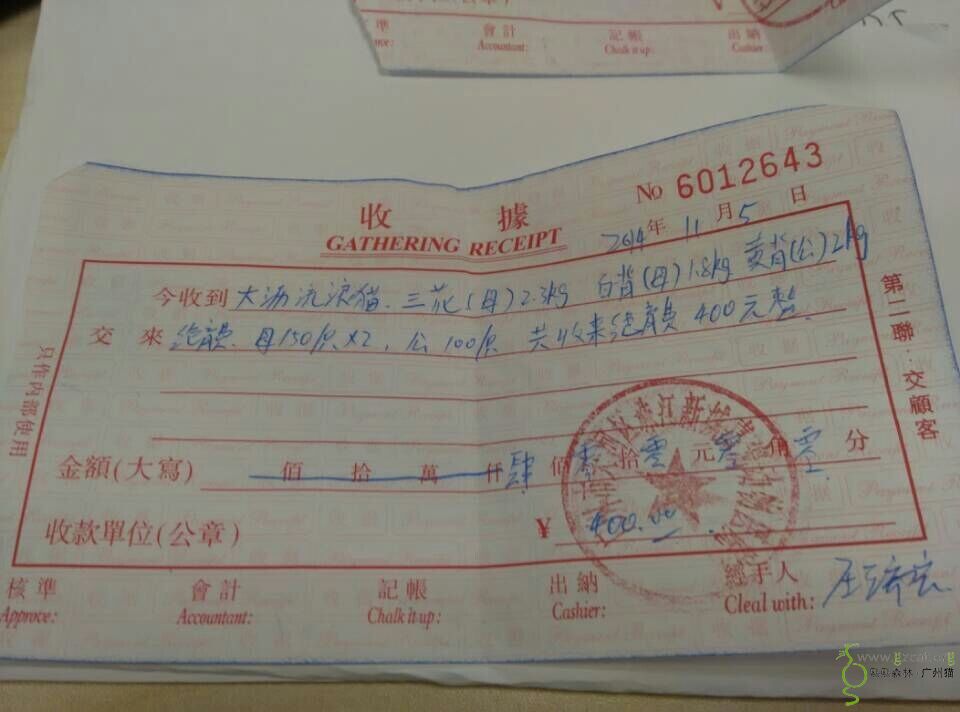 準 會計 記帳 出納
Accountant: Chalk it up: Cashier:
收據
GATHERING RECEIPT
No 6012643
2014年 11月 5日
今收到 大沥流浪猫. 三花(母)2.3kg 白背(母)1.8kg 黄背(公)2kg
交來 绝育费 母150原×2, 公100原 共收来绝育费 400元整.
金額(大寫) 佰 拾 萬 仟 肆 佰 零 拾 零 元 零 角 零 分
收款單位(公章) ¥ 400.00
第二聯:交顧客
只作內部使用
核準 會計 記帳 出納 經手人
Approve: Accountant: Chalk it up: Cashier: Cleal with:
www.gzcat.org
森林·广州猫